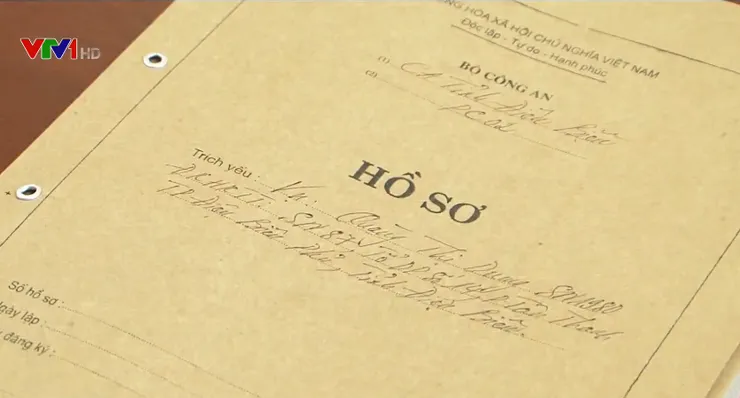 VTV1 HD
CỘNG HÒA XÃ HỘI CHỦ NGHĨA VIỆT NAM
Độc lập - Tự do - Hạnh phúc
BỘ CÔNG AN
(1) CA Tỉnh Điện Biên
(2) PC04
HỒ SƠ
Trích yếu: Vụ: Quàng Thị Dung SN1980
SN 87, Tổ DP
Thanh
TP Điện Biên Phủ, tỉnh Điện Biên
Số hồ sơ:
Ngày lập:
đăng ký: